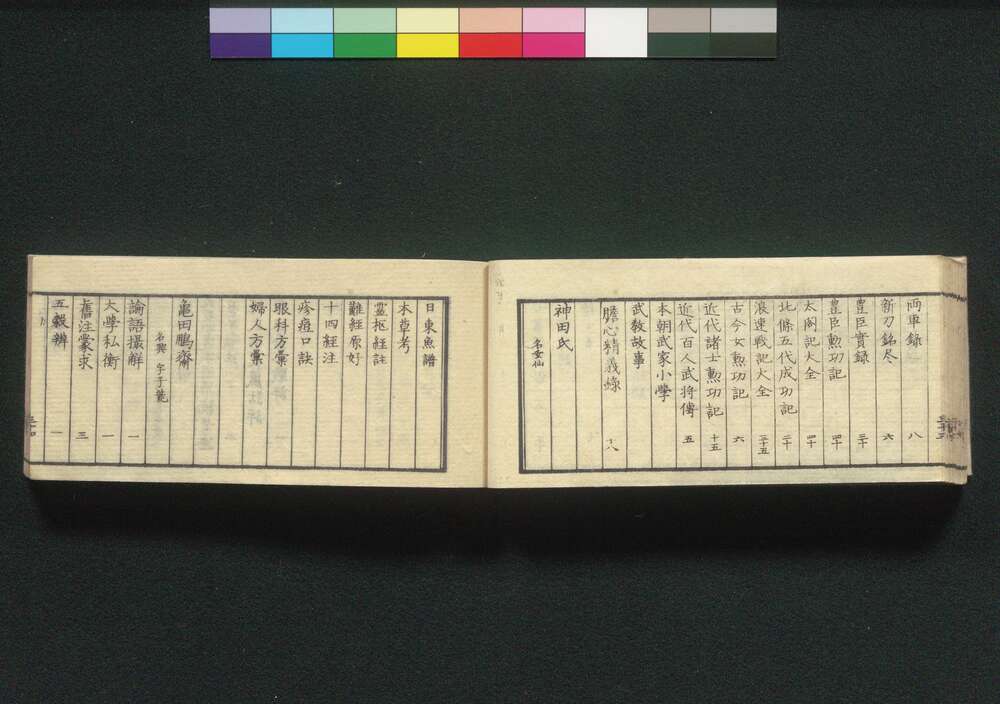 両車録 八
新刀銘尽 六
豊臣實録 三十
豊臣勲功記 四十
太閤記大全 四十
北條五代成功記 二十
浪速戦記大全 三十五
古今女勲功記 六
近代諸士勲功記 十五
近代百人武将傳 五
本朝武家小學
武教故事
膽心精義録 十八
神田氏 名女仙
日東魚譜
本草考
靈枢経註
難経原好
十四経注
疹痘口訣
眼科方彙
婦人方彙
亀田鵬齋
名興 字子龍
論語撮解 一
大學私衡 一
舊注蒙求 三
五穀辨 一